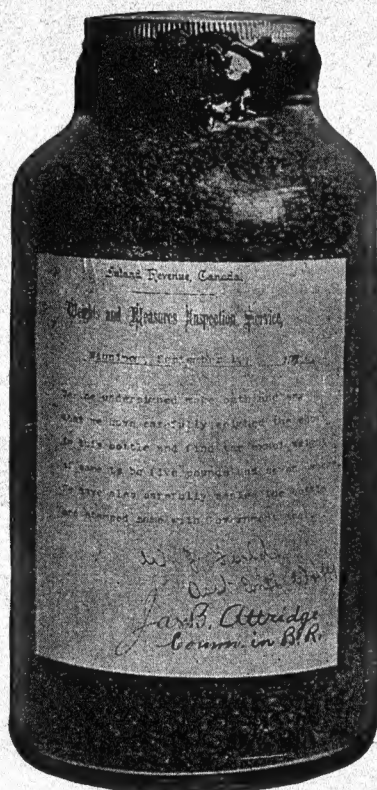 Inland Revenue, Canada.
Weights and Measures Inspection Service,
Winnipeg, September
We the undersigned make oath and say
that we have carefully weighed the
in this bottle and find the
of same to be five pounds and
We have also carefully sealed the bottle
and stamped same with Government

Jas B. Attridge
Comm. in B.R.